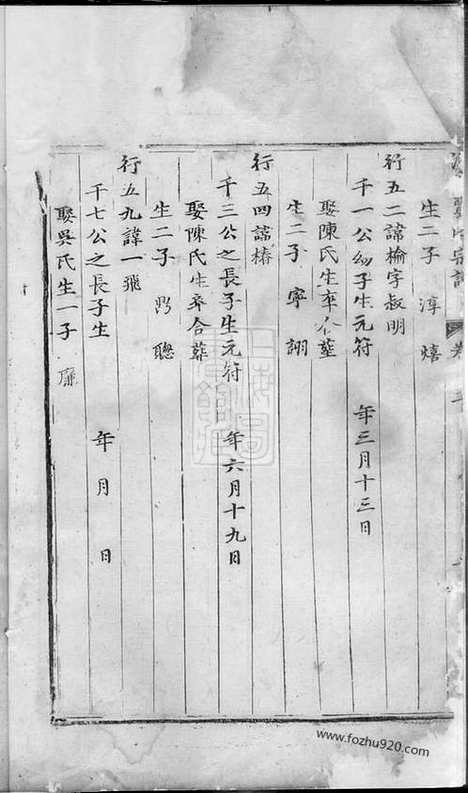 生二子 淳 熺
行五二諱榆字叔明
千一公幼子生元符 年三月十三日
娶陳氏生卒合葬
生二子 寧 詡
行五四諱椿
千三公之長子生元符 年六月十九日
娶陳氏生卒合葬
生二子 聰
行五九諱一飛
千七公之長子生 年 月 日
娶吳氏生一子
www.fozhu920.com